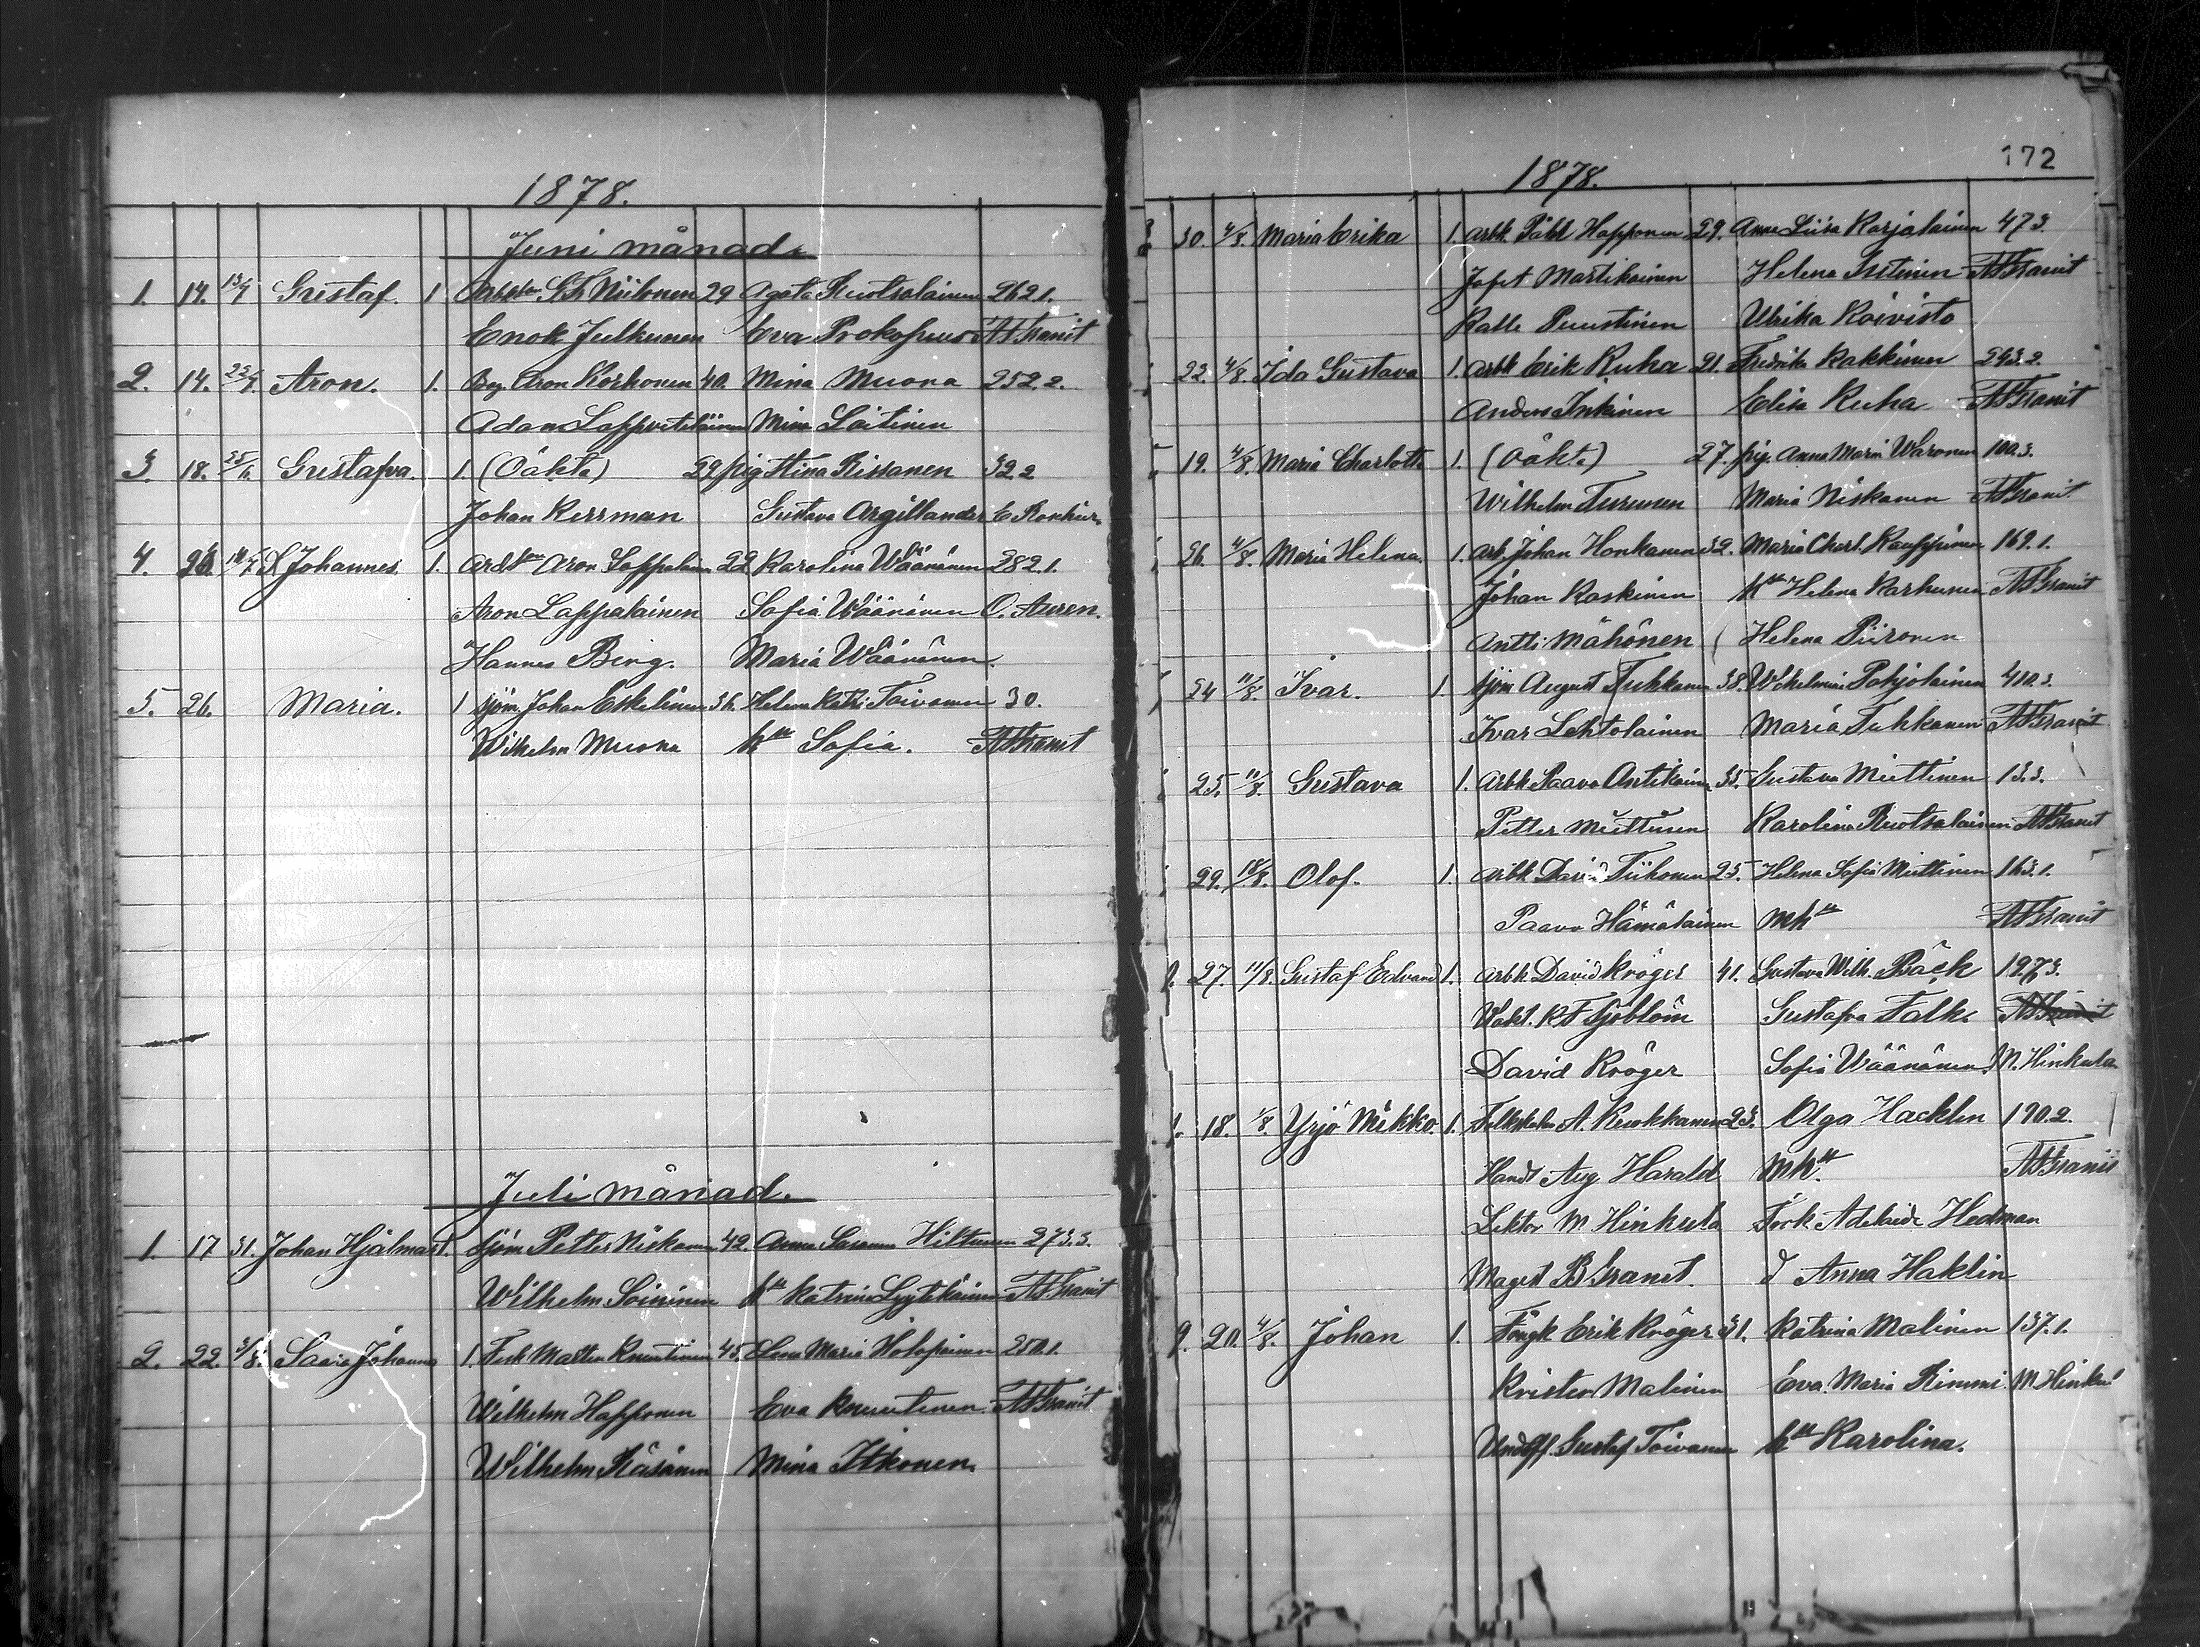 1878.
Juni månad.
1. 14. Gustaf. 1 Niilonen 29 Agata Ruotsalainen 262 1.
Enok Julkunen Eva Prokopius
2. 14. Aron. 1. Aron Korhonen 40. Mina Muona 252 2.
Adam Lappveteläinen Mina Laitinen
3. 18. 25/6. Gustafva. 1. (Oäkta) 29 pig Stina Rissanen 32 2
Johan Kerrman Gustava Argillander
4. Johannes 1. Aron Lappalain 22 Karolina Wäänänen 282.1.
Aron Lappalainen Sofia Wäänänen O. Auren.
Hannes Bing. Maria Wäänänen.
5. 26. Maria. 1 sjöm Johan Eskelinen 36. Helena Katri Toivanen 30.
Wilhelm Muona hu Sofia.
Juli månad.
1. 17 31. Johan Hjalmar 1. sjöm Petter Niskanen 42. Anna Sanna Hiltunen 273.3.
Wilhelm Soininen hu Katrina Lyytikäinen
2. 22. 4/8. Johannes 1. Matten Knuutinen 45. Maria Holopainen 250.1.
Wilhelm Happonen Eva Knuutinen
Wilhelm Räsänen Mina Itkonen.
1878. 172
30. 4/8 Maria Erika 1. arbk. Påhl Happonen 29. Anna Liisa Karjalainen 47 3.
Jafet Martikainen Helena
Kalle Puustinen Ulrika Koivisto
22. 4/8. Ida Gustava 1. arbk Erik Ruha 21. Fredrika Kakkinen 243.2.
Anders Inkinen Elisa Ruha
19. 4/8. Maria Charlotta 1. (Oäkta) 27. pig. Anna Maria Waronen 100.3.
Wilhelm Turunen Maria Niskanen
26. 4/8. Maria Helena. 1. arb. Johan Honkanen 32. Maria Charl. Kauppinen 169.1.
Johan Kaskinen hu Helena Karhunen
Antti Mähönen Helena Piironen
24 11/8. Ivar. 1. sjöm August Tukkanen 38. Wilhelmina Pohjolainen 410.3.
Ivar Lehtolainen Maria Tukkanen
25. 11/8. Gustava 1. arbk Paavo Antikainen 35. Gustava Miettinen 13.3.
Petter Miettinen Karolina Ruotsalainen
29. 18/8. Olof. 1. arbk David Tiihonen 25. Helena Sofia Miettinen 163.1.
Paavo Hämäläinen mhu
27. 11/8. Gustaf Edvard 1. arbk. David Kröger 41. Gustava Wilh. Bäck 197 3.
K F Sjöblom Gustafva Falk
David Kröger Sofia Wäänänen M. Hinkula
18. 1/8. Yrjö Mikko. 1. A. Kuokkanen 23. Olga Hacklin 190.2.
Handl Aug Harald mhu.
Lektor M Hinkula Adelaide Hedman
Magist B Granit. d Anna Haklin
9. 20. 4/8. Johan 1. Erik Kröger 31. Katrina Malinen 137.1.
Krister Malinen Eva Maria Rimmi M Hinkul
Undoff. Gustaf Toivanen hu Karolina.